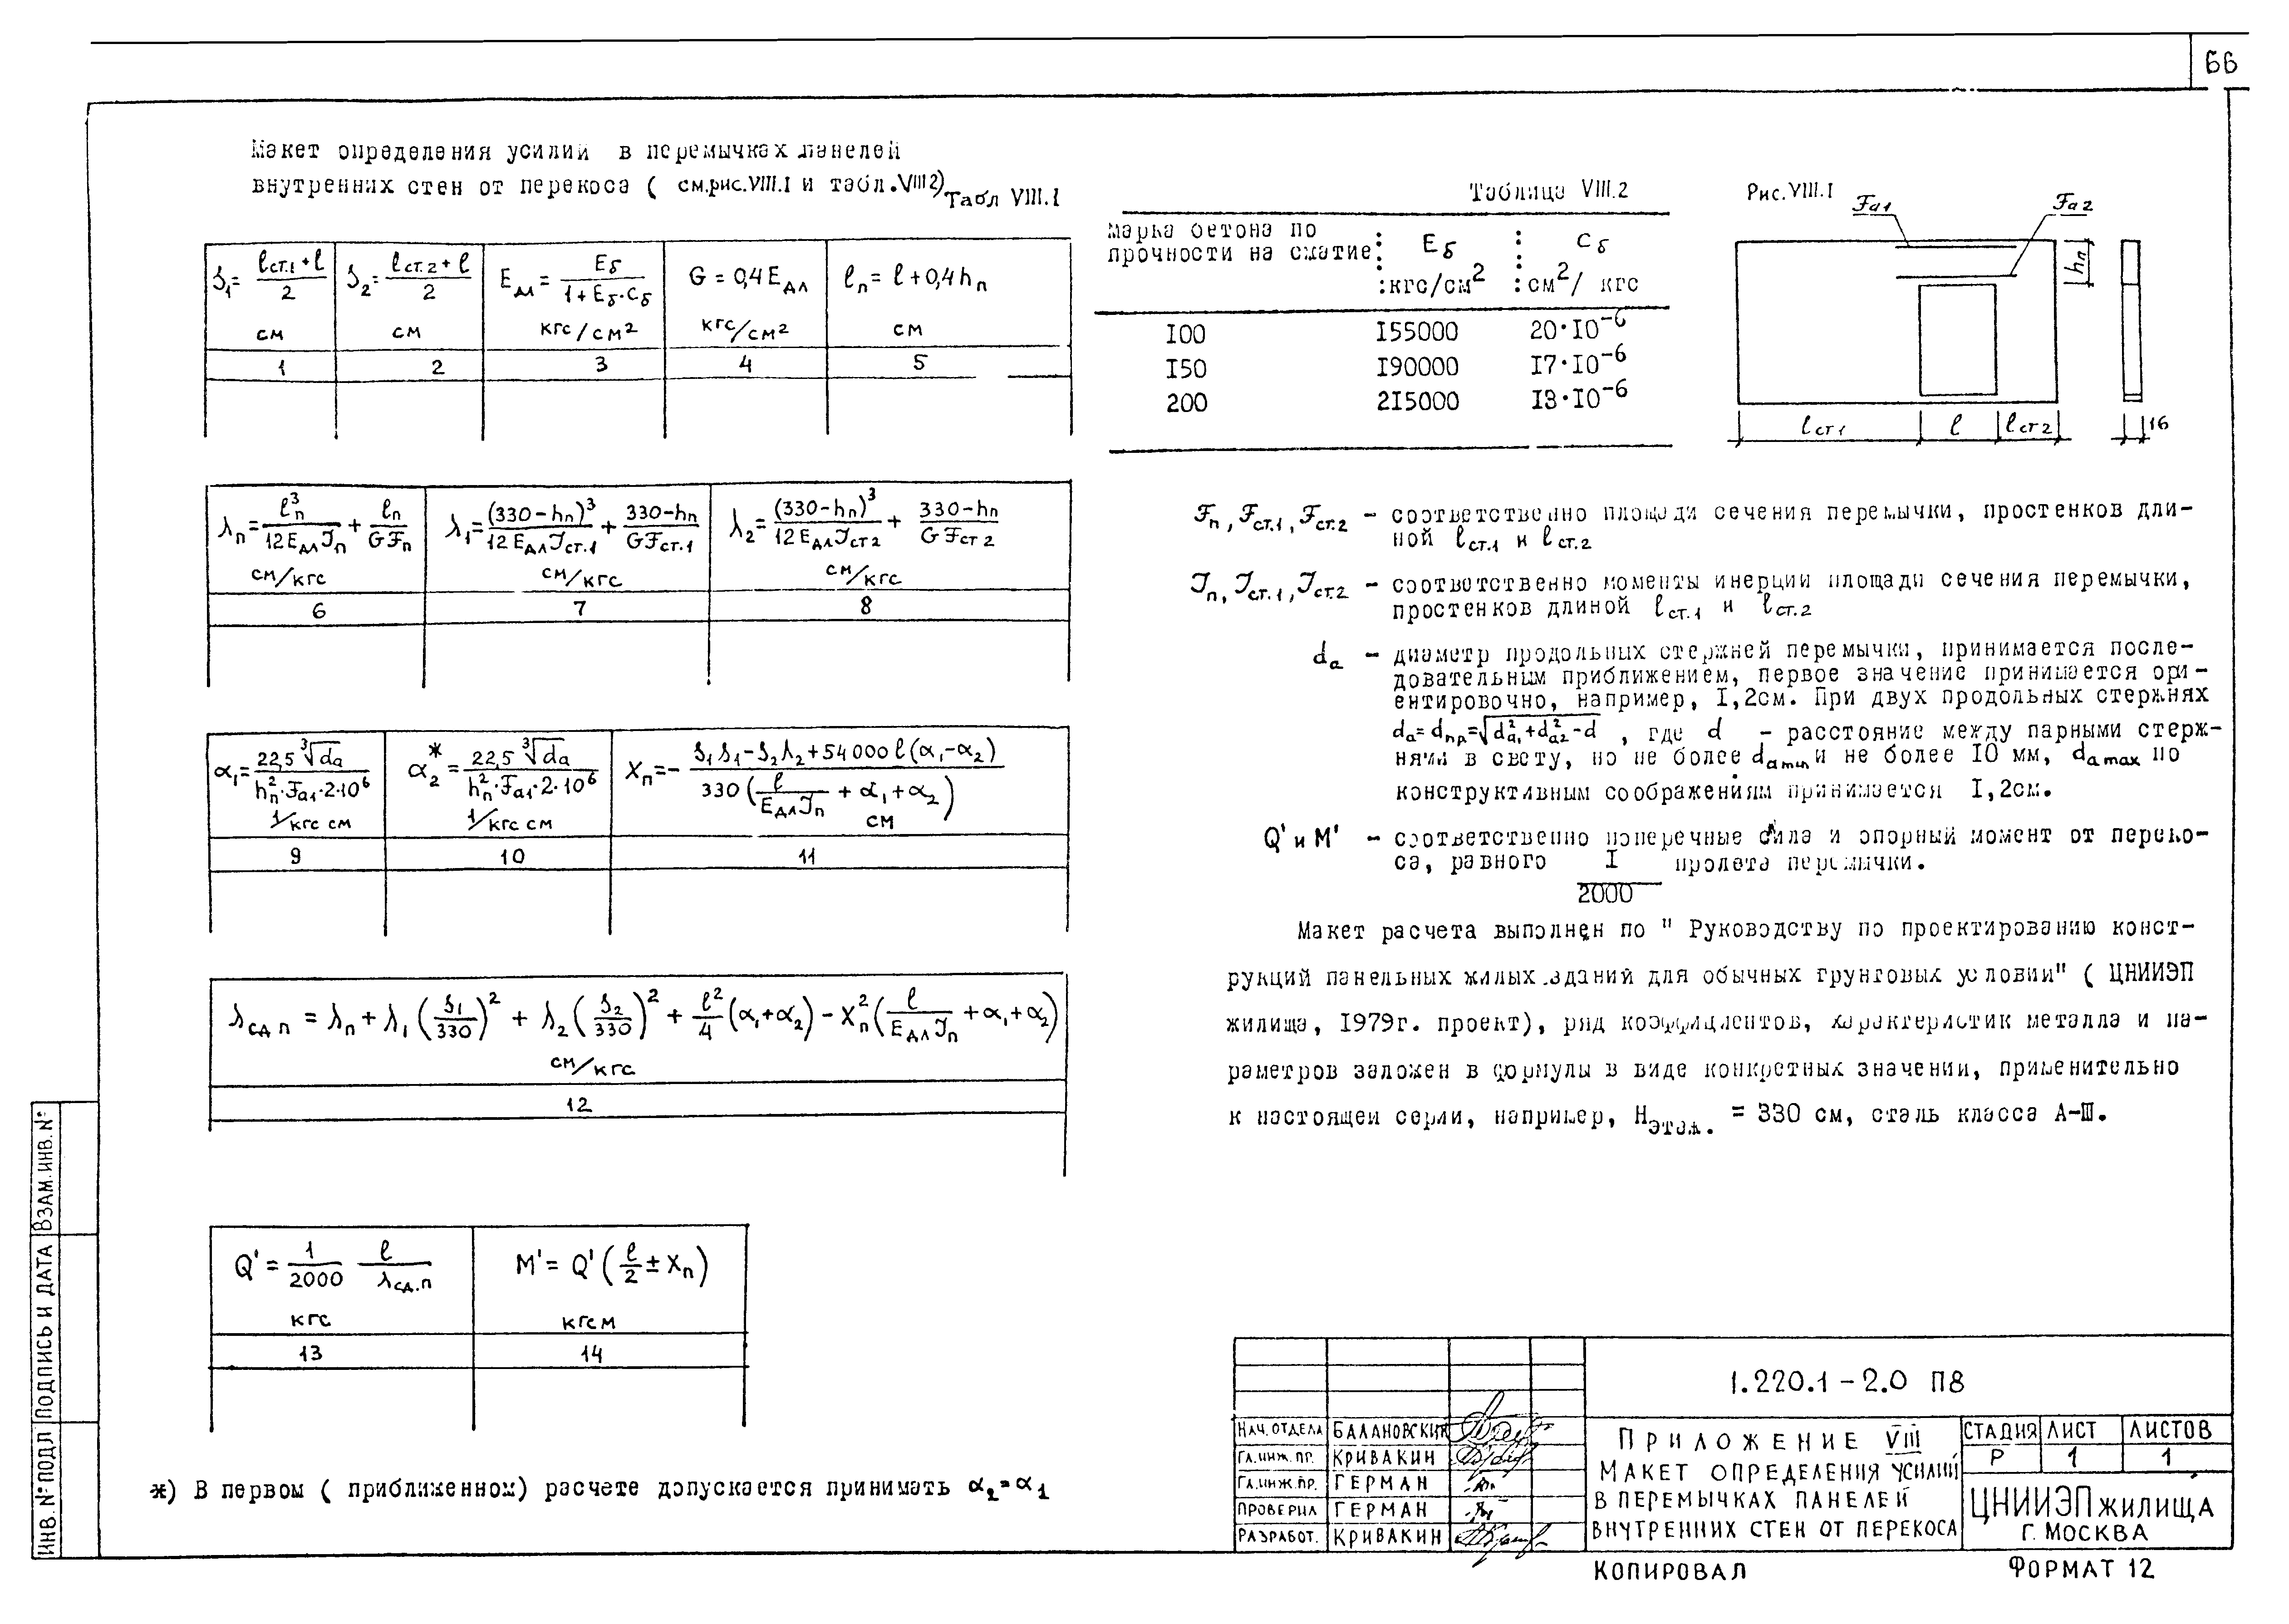 66
Макет определения усилий в перемычках панелей
внутренних стен от перекоса ( см.рис.VIII.I и табл.VIII2)
Табл VIII.I
S₁ = (lст.1 + l)/2
см
S₂ = (lст.2 + l)/2
см
Eдл = Eб/(1 + Eб·Cб)
кгс/см²
G = 0,4 Eдл
кгс/см²
lп = l + 0,4 hп
см
1 2 3 4 5
λп = lп³/(12 Eдл Jп) + lп/(G Fп)
см/кгс
λ₁ = (330-hп)³/(12 Eдл Jст.1) + (330-hп)/(G Fст.1)
см/кгс
λ₂ = (330-hп)³/(12 Eдл Jст2) + (330-hп)/(G Fст2)
см/кгс
6 7 8
α₁ = 22,5 ³√da/(hп²·Fa1·2·10⁶)
1/кгс см
α₂* = 22,5 ³√da/(hп²·Fa1·2·10⁶)
1/кгс см
Xп = - (S₁λ₁ - S₂λ₂ + 54000 l(α₁-α₂))/(330(l/(Eдл Jп) + α₁ + α₂))
см
9 10 11
λсд п = λп + λ₁(S₁/330)² + λ₂(S₂/330)² + l²/4 (α₁+α₂) - Xп²(l/(Eдл Jп) + α₁ + α₂)
см/кгс
12
Q' = 1/2000 l/λсд.п
кгс
M' = Q'(l/2 ± Xп)
кгсм
13 14
*) В первом ( приближенном) расчете допускается принимать α₂=α₁
Таблица VIII.2
Марка бетона по прочности на сжатие
Eб
кгс/см²
Cб
см²/ кгс
I00 I55000 20·I0⁻⁶
I50 I90000 I7·I0⁻⁶
200 2I5000 I3·I0⁻⁶
Рис.VIII.I
Fa1
Fa2
hп
lст1 l lст2
16
Fп, Fст.1, Fст.2 - соответственно площади сечения перемычки, простенков дли-
ной lст.1 и lст.2
Jп, Jст.1, Jст.2 - соответственно моменты инерции площади сечения перемычки,
простенков длиной lст.1 и lст.2
da - диаметр продольных стержней перемычки, принимается после-
довательным приближением, первое значение принимается ори-
ентировочно, например, I,2см. При двух продольных стержнях
da = dпр = √(da1² + da2² - d) , где d - расстояние между парными стерж-
нями в свету, но не более da min и не более I0 мм, da max по
конструктивным соображениям принимается I,2см.
Q' и M' - соответственно поперечные сила и опорный момент от переко-
са, равного I/2000 пролета перемычки.
Макет расчета выполнен по " Руководству по проектированию конст-
рукций панельных жилых зданий для обычных грунтовых условии" ( ЦНИИЭП
жилища, I979г. проект), ряд коэффициентов, характеристик металла и па-
раметров заложен в формулы в виде конкретных значении, применительно
к настоящей серии, например, Hэтаж. = 330 см, сталь класса А-III.
ИНВ. № ПОДЛ ПОДПИСЬ И ДАТА ВЗАМ. ИНВ. №
1.220.1-2.0 П8
НАЧ. ОТДЕЛА БАЛАНОВСКИЙ
ГЛ. ИНЖ. ПР. КРИВАКИН
ГЛ. ИНЖ. ПР. ГЕРМАН
ПРОВЕРИЛ ГЕРМАН
РАЗРАБОТ. КРИВАКИН
ПРИЛОЖЕНИЕ VIII
МАКЕТ ОПРЕДЕЛЕНИЯ УСИЛИЙ
В ПЕРЕМЫЧКАХ ПАНЕЛЕЙ
ВНУТРЕННИХ СТЕН ОТ ПЕРЕКОСА
СТАДИЯ ЛИСТ ЛИСТОВ
Р 1 1
ЦНИИЭПЖИЛИЩА
Г. МОСКВА
КОПИРОВАЛ
ФОРМАТ 12